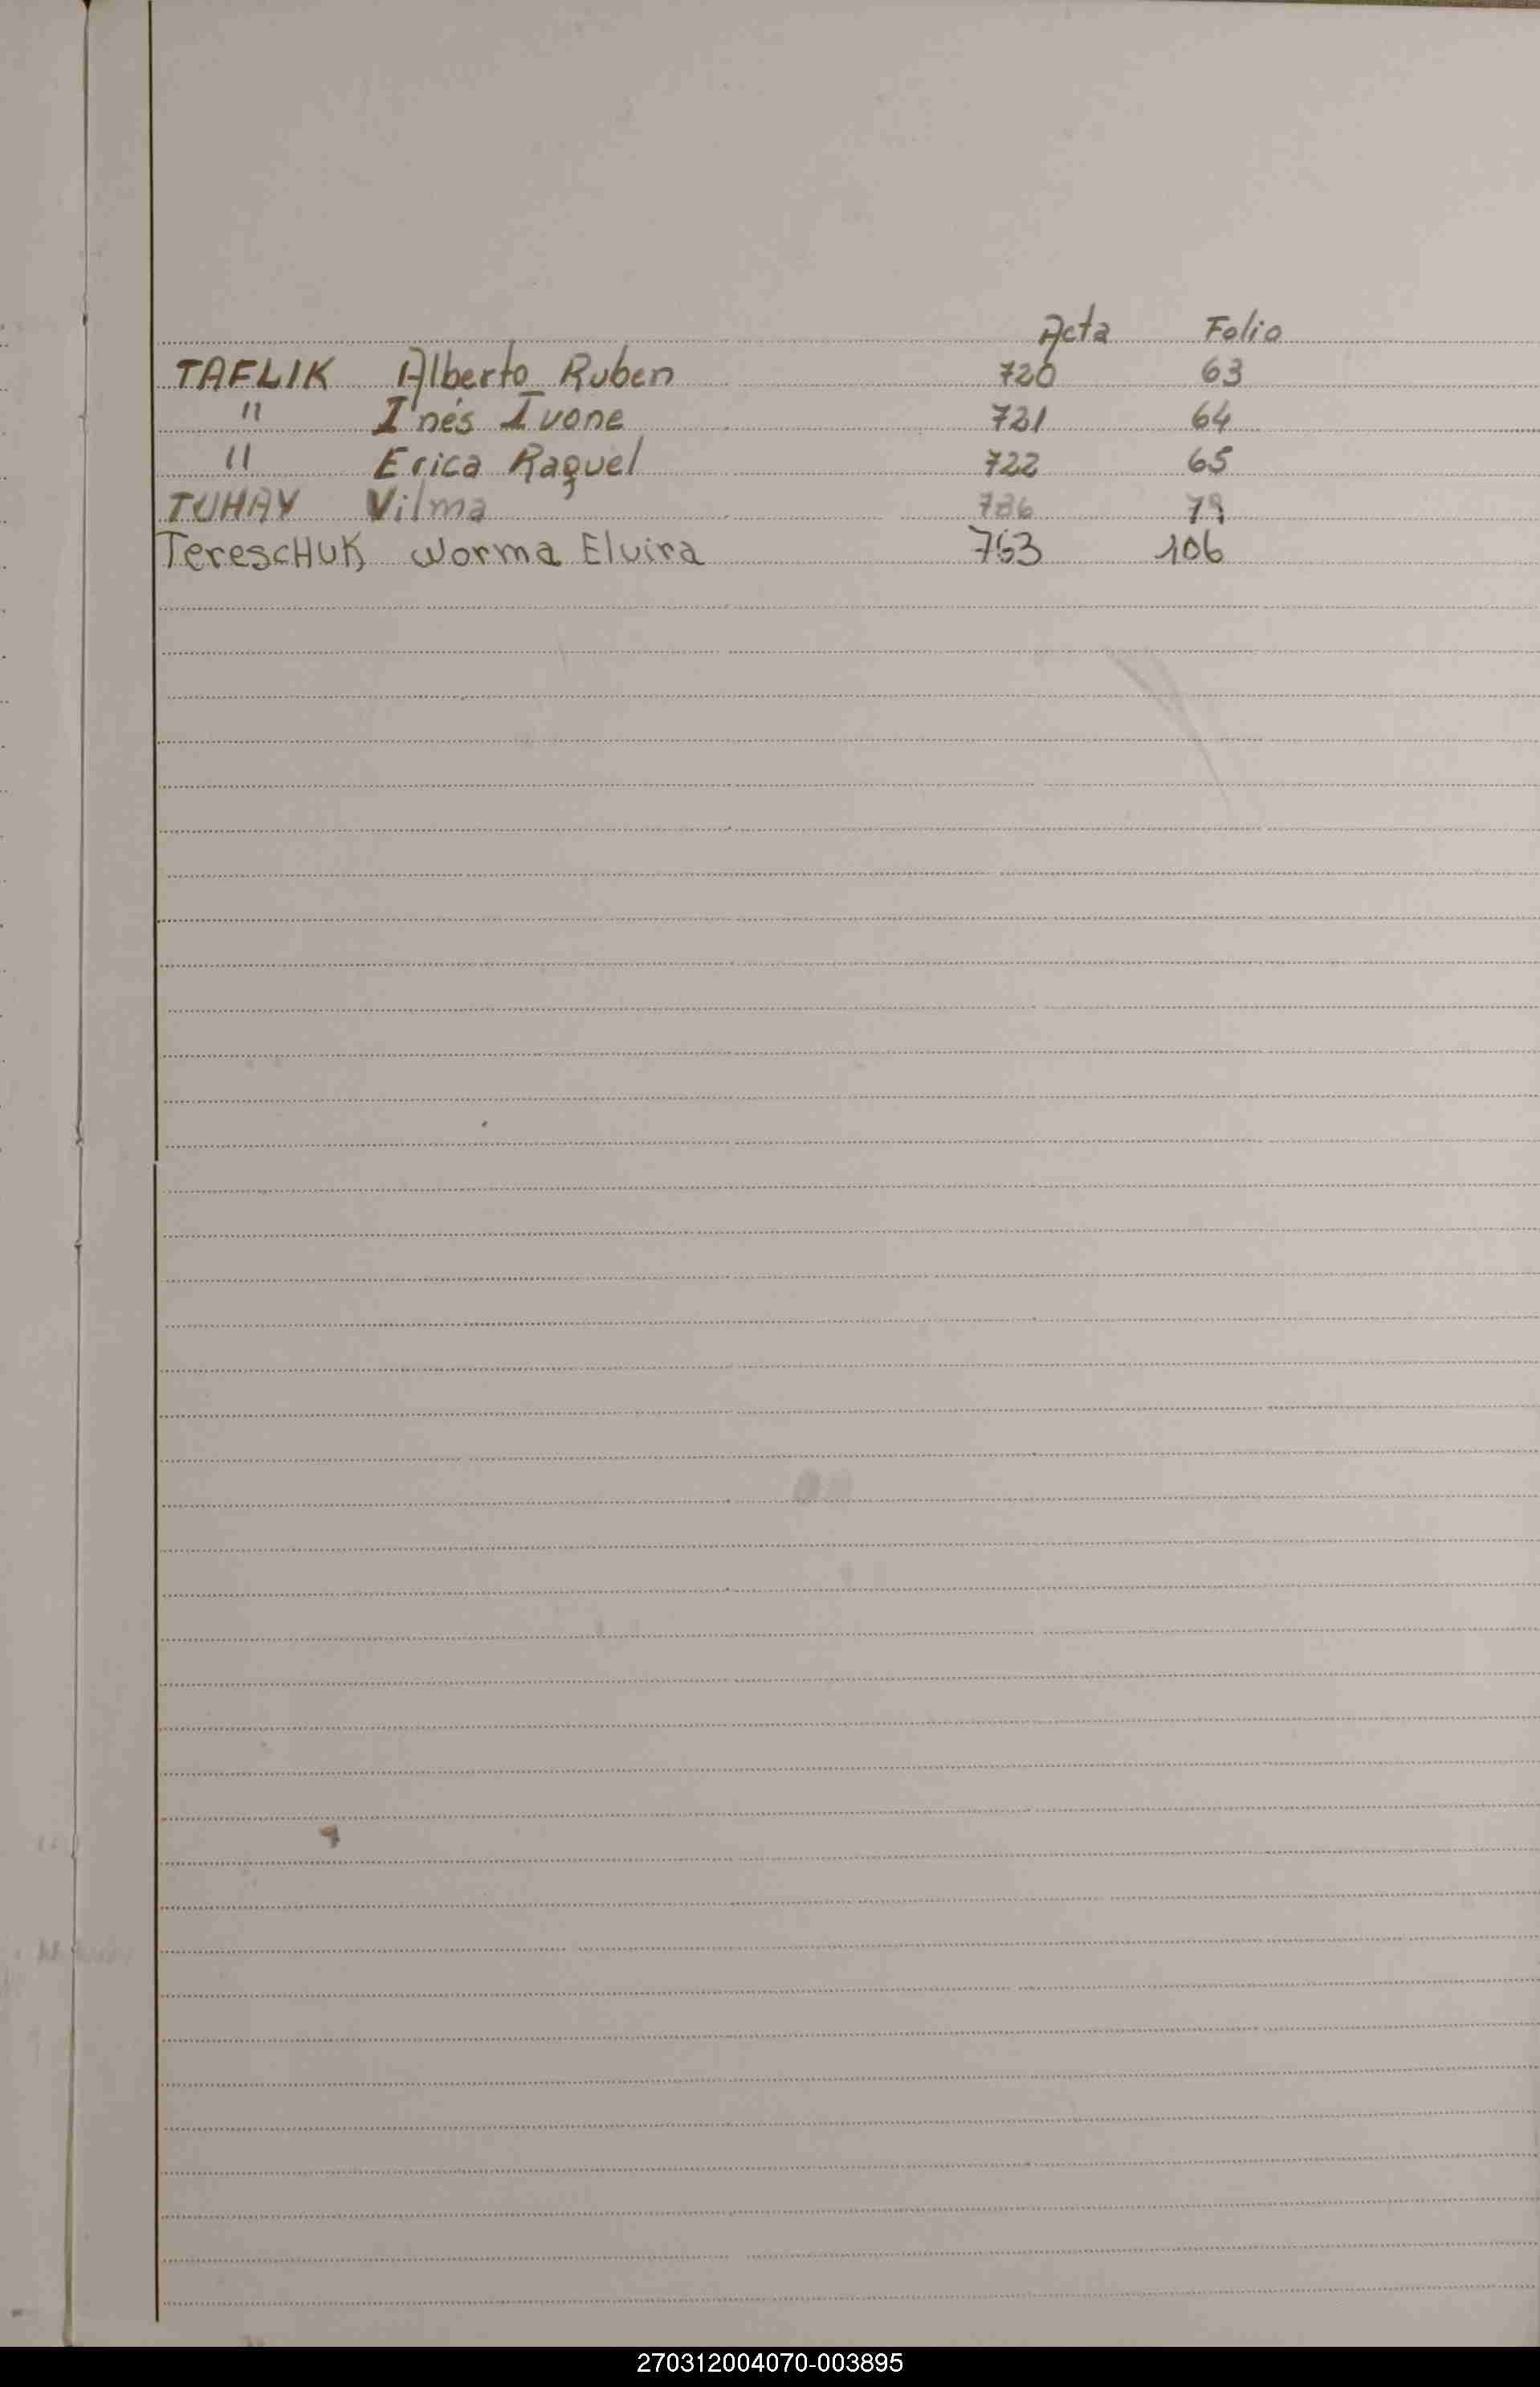 Acta Folio
TAFLIK Alberto Ruben 720 63
" Inés Ivone 721 64
" Erica Raquel 722 65
TUHAY Vilma 736 79
TerescHUK Norma Elvira 763 106
270312004070-003895